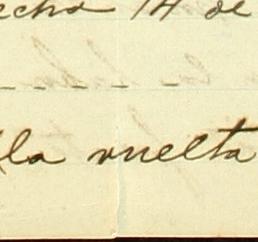 echo 14 de
la vuelta